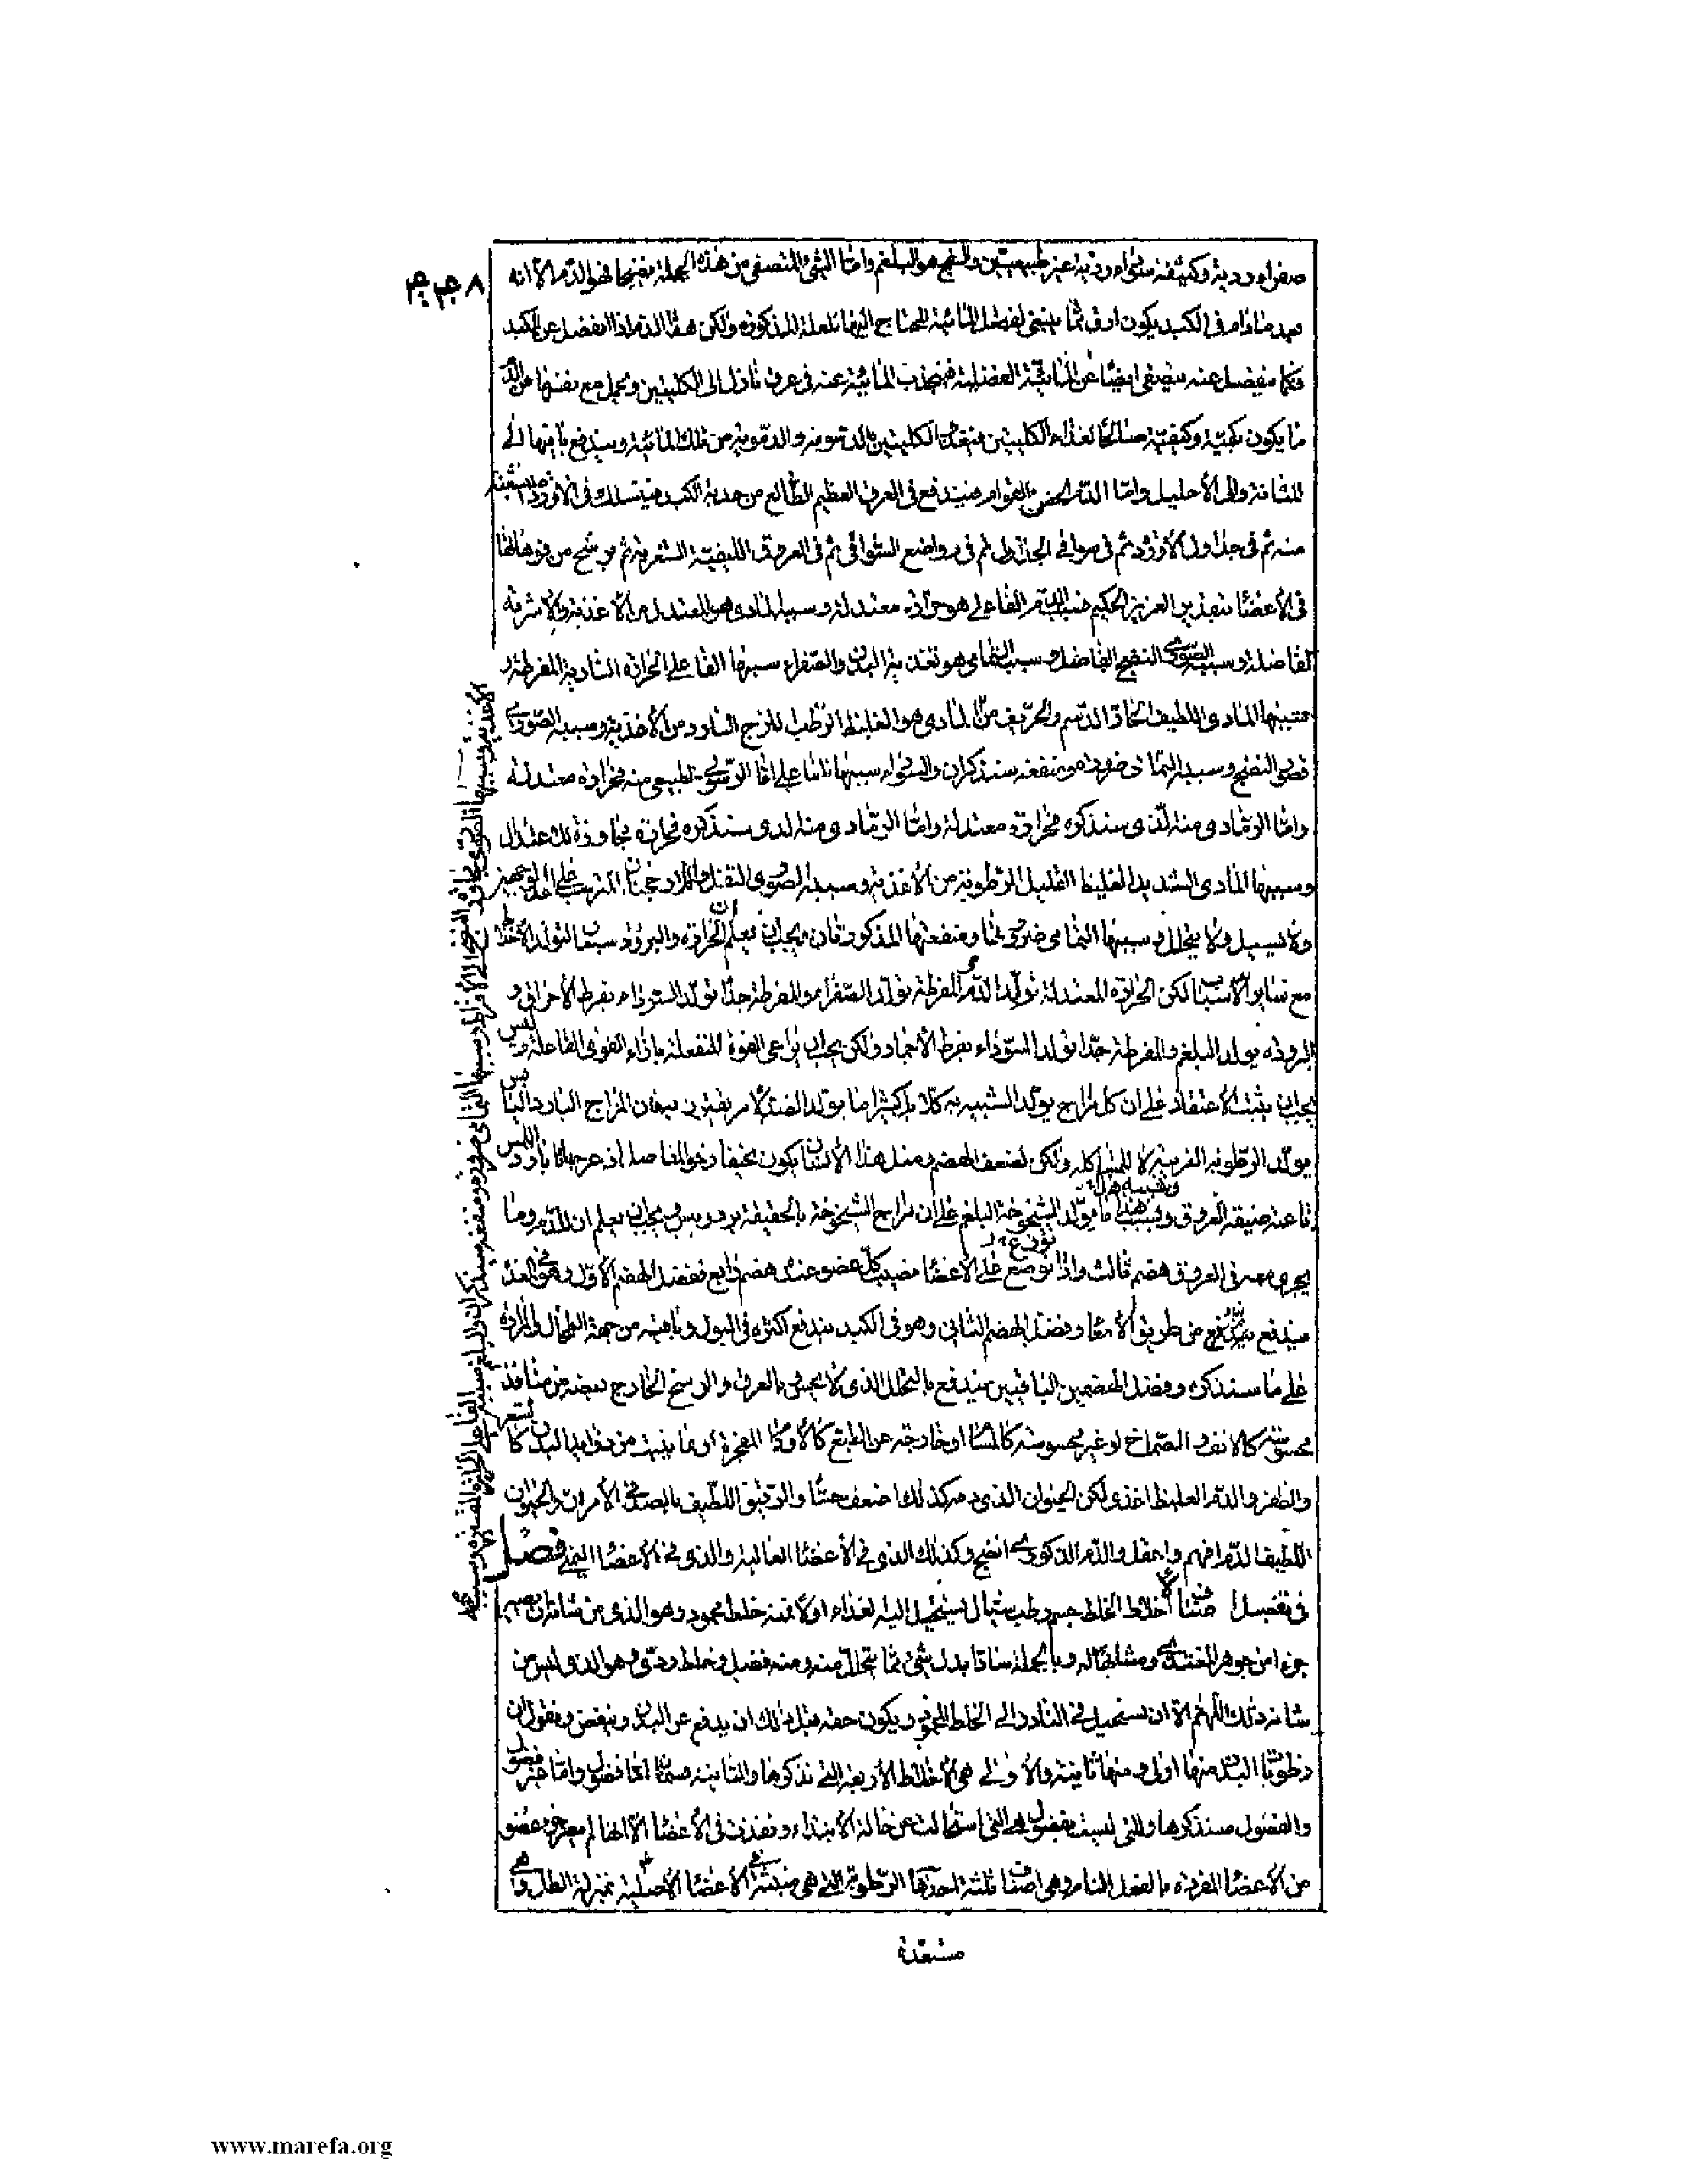 صفراء ردية وكثيفه سوداء ردية غير طبيعيتين والفج هو البلغم واما الشئ المتصفى من هذه الجملة نضيجا فهو الدم الا انه
بعد ما دام فى الكبد يكون ارق مما ينبغى لفضل المائية المحتاج اليها للعلة المذكورة ولكن هذا الدم اذا انفصل عن الكبد
فكما ينفصل عنه يتصفى ايضا عن المائية الفضلية فينجذب المائية عنه فى عرق نازل الى الكليتين ويحمل مع نفسها من الدم
ما يكون بكميته وكيفيته صالحا لغذاء الكليتين فيغذوا الكليتين بالدسومة والدموية من تلك المائية ويندفع باقيها الى
المثانة والى الاحليل واما الدم الحسن القوام فيندفع فى العرق العظيم الطالع من حدبة الكبد فيتسلك فى الاوردة المتشعبة
منه ثم فى جداول الاوردة ثم فى سواقى الجداول ثم فى رواضع السواقى ثم فى العروق الليفية الشعرية ثم يرشح من فوهاتها
فى الاعضا بتقدير العزيز الحكيم فسبب الدم الفاعلى هو حرارة معتدلة وسببه المادى هو المعتدل من الاغذية والاشربة
الفاضلة وسببه الصورى النضج الفاضل وسببه التمامى هو تغذية البدن والصفراء سببها الفاعلى الحرارة النارية المفرطة
سببها المادى اللطيف الحار الدسم والحريف من المادى هو الغليظ الرطب اللزج البارد من الاغذية وسببه الصورى
قصور النضج وسببه التمامى ضرورة ومنفعة ستذكران والسوداء سببها الفاعلى اما الرسوبى الطبيعى منه فحرارة معتدلة
واما الرمادى منه الذى سنذكره فحرارة معتدلة واما الرمادى منه الذى سنذكره فحرارة مجاوزة للاعتدال
وسببها المادى الشديد الغليظ القليل الرطوبة من الاغذية وسببه الصورى الثفل المترسب على احد الوجهين
ولا يسيل ولا يتحلل وسببها التمامى ضرورتها ومنفعتها المذكورتان ويجب ان يعلم ان الحرارة والبرودة سببان لتولد الاخلاط
مع ساير الاسباب لكن الحرارة المعتدلة تولد الدم والمفرطة تولد الصفراء والمفرطة جدا تولد السوداء بفرط الاحراق و
البرودة يولد البلغم والمفرطة جدا تولد السوداء بفرط الاجماد ولكن يجب ان يراعى القوة المنفعلة بازاء القوى الفاعلة وليس
يجب ان يثبت الاعتقاد على ان كل مزاج يولد الشبيه به كلا بل كثيرا ما يولد الضد لامر يقترن بهما فان المزاج البارد اليابس
يولد الرطوبة الغريبة لا للمشاكلة ولكن لضعف الهضم ومثل هذا الانسان يكون نحيفا رخو المفاصل
ضيقة العروق وشبيه هذا ما يولد الشيخوخة البلغم على ان مزاج الشيخوخة بالحقيقة برد ويبس ويجب ان يعلم ان للدم وما
يجرى معه فى العروق هضم ثالث واذا توزع على الاعضا فيصيب كل عضو عنده هضم رابع ففضل الهضم الاول وهو فى المعدة
يندفع من طريق الامعا وفضل الهضم الثانى وهو فى الكبد يندفع اكثره فى البول وباقيه من جهة الطحال والمرارة
على ما سنذكره وفضل الهضمين الباقيين يندفع بالتحلل الذى لا يحس وبالعرق والوسخ الخارج بعضه من منافذ
محسوسة كالانف والصماخ او غير محسوسة كالمسام او خارجه عن الطبع كالاورام المتفجرة او بما ينبت من زوايد البدن كالشعر
والظفر والدم الغليظ اغذى لكن الحيوان الذى دمه كذلك اضعف حسا والرقيق اللطيف بالضد فى الامرين والحيوان
اللطيف الدم افهم واعقل والدم الذكورى انضج وكذلك الذى فى الاعضا العالية والذى فى الاعضا اليمنى فصل
فى تفصيل اقسام الاخلاط الخلط جسم رطب سيال يستحيل اليه الغذاء اولا فمنه خلط محمود وهو الذى من شانه ان يصير
جزءا من جوهر المغتذى ومشابها له وبالجملة سادا بدل شئ مما يتحلل منه ومنه فضل وخلط ردى وهو الذى ليس من
شانه ذلك اللهم الا ان يستحيل فى النادر الى الخلط المحمود ويكون حقه قبل ذلك ان يدفع عن البدن وينفض ونقول ان
رطوبات البدن منها اولى ومنها ثانية والاولى هى الاخلاط الاربعة التى نذكرها والثانية قسمان اما فضول واما غير فضول
والفضول سنذكرها والتى ليست بفضول هى التى استحالت عن حالة الابتداء ونفذت فى الاعضا الا انها لم يصر جزء عضو
من الاعضا المفردة بالفعل التام وهى اصناف ثلثة احدها الرطوبة التى هى منبثة فى الاعضا الاصلية بمنزلة الطل وهى
مستعدة
www.marefa.org